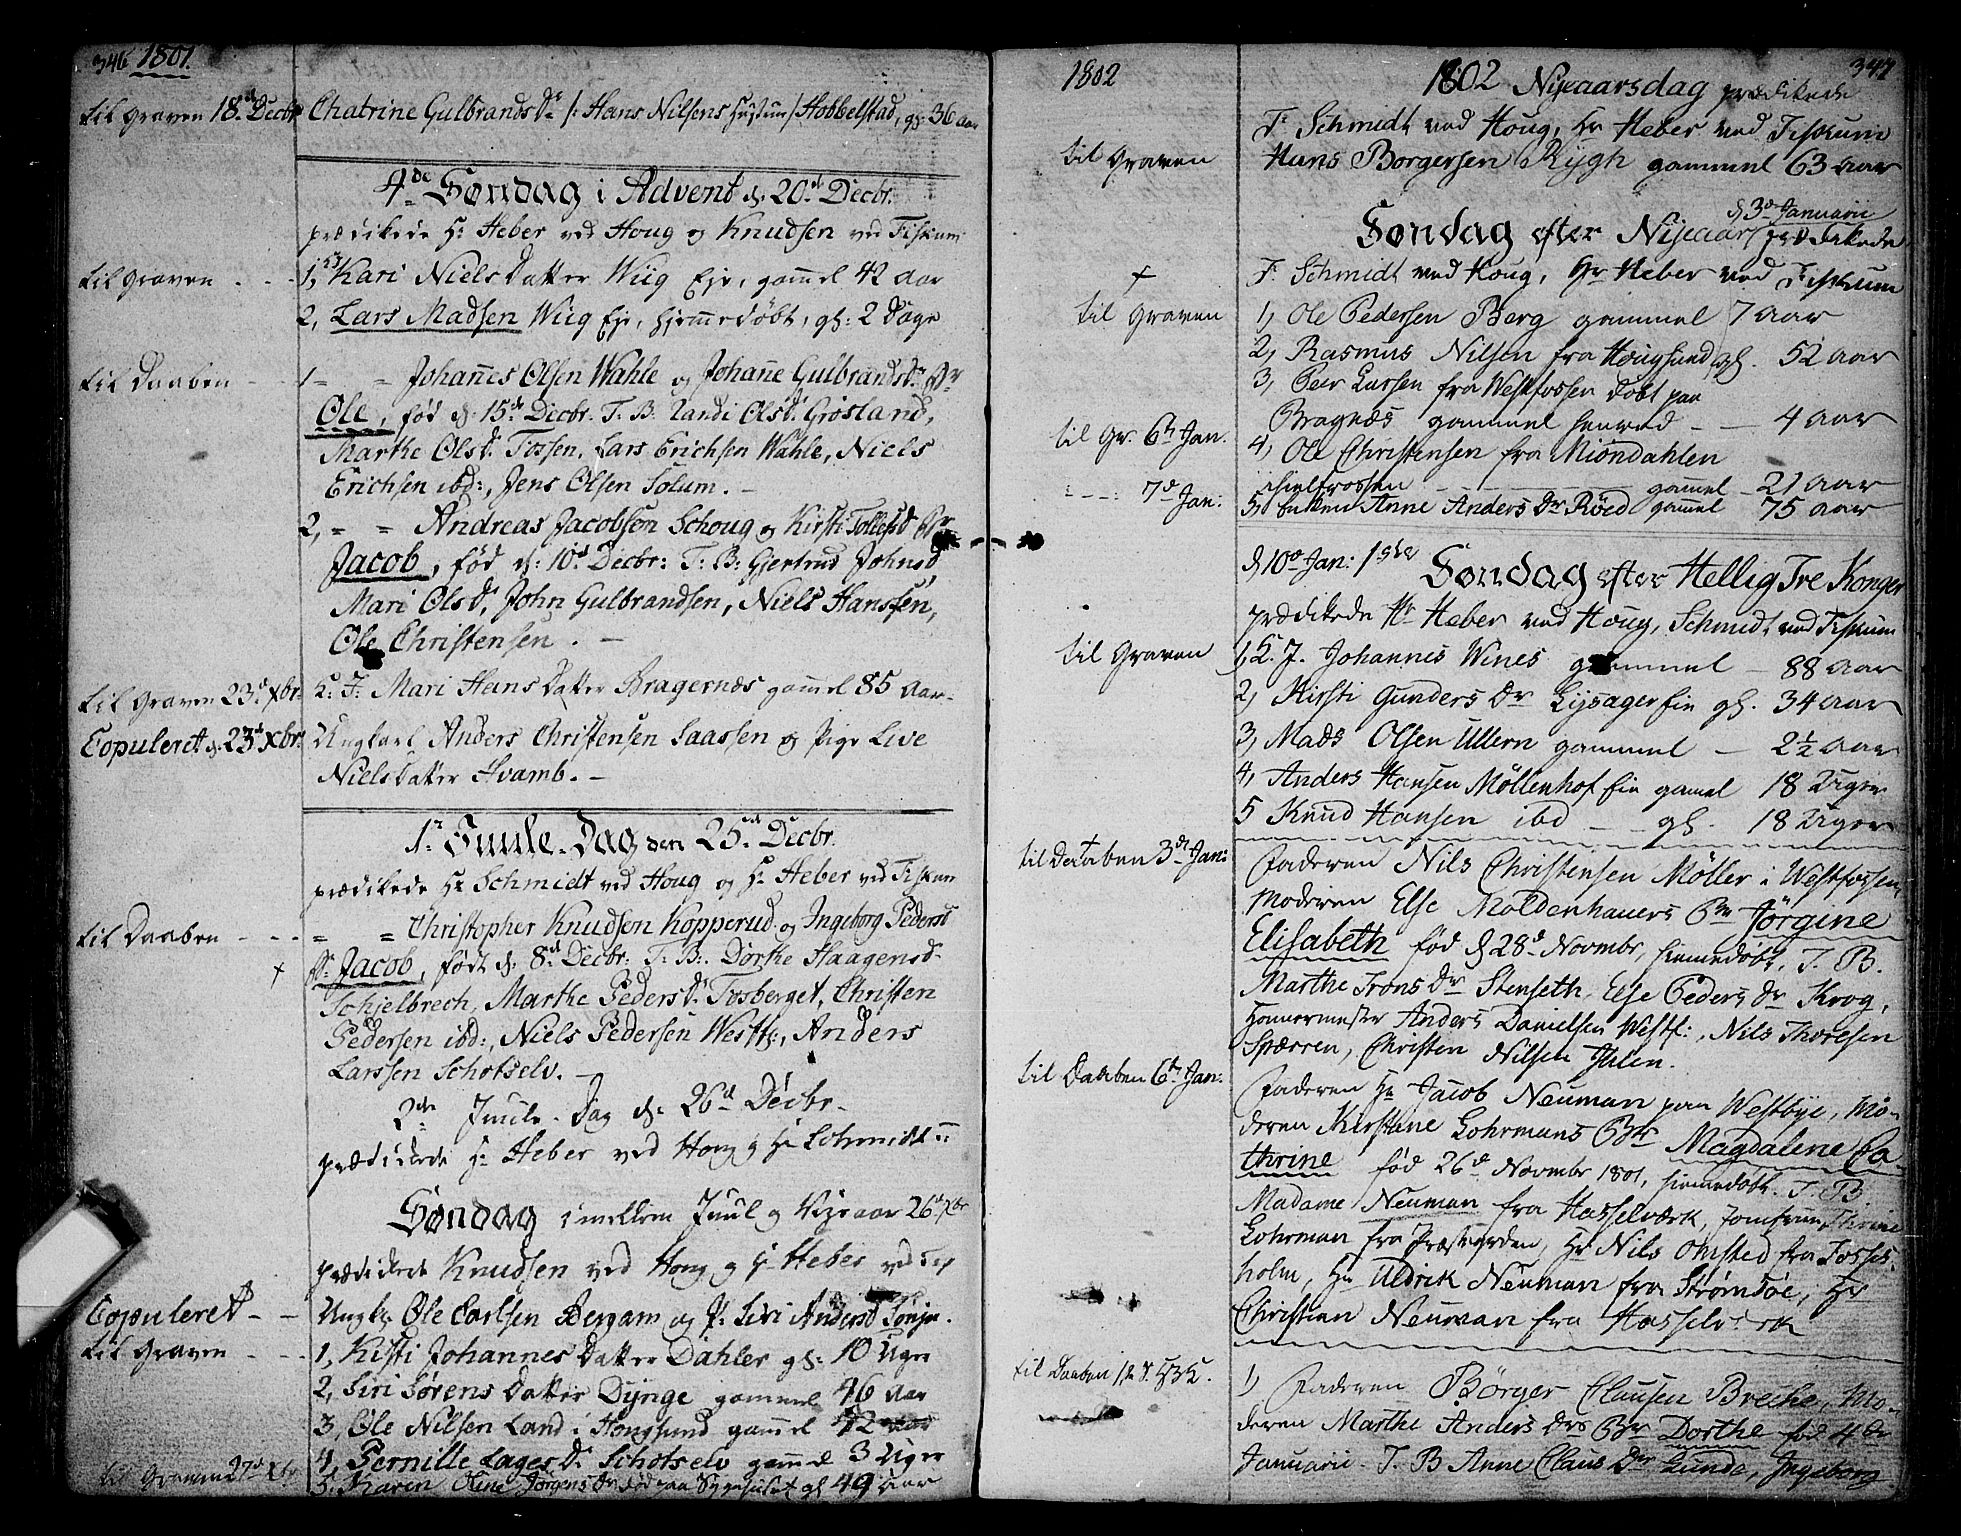 346 1801.
til Graven 18d Decbr Chatrine Gulbrands Dr /: Hans Nilsens Hustrue / Hobbelstad, gl: 36 aar
4de Søndag i Advent d. 20d Decbr.
prædikede Hr Heber ved Houg og Knudsen ved Fiskum
til Graven 1, Kari Niels Datter Wiig Eje, gamel 42 Aar
2, Lars Madsen Wiig Eje, hjemedøbt, gl: 2 Dage
til Daaben 1 Johannes Olsen Wahle og Johane Gulbrandsd.
Ole, fød d. 15de Decbr. T. B. Randi Olsd. Grøsland,
Marthe Olsd. Fossen. Lars Erichsen Wahle, Niels
Erichsen ibd:, Jens Olsen Solum.
2, Andreas Jacobsen Schoug og Kirsti Tollefsd
Jacob, fød d: 10d Decbr: T. B: Gjertrud Johnsd,
Mari Olsd. John Gulbrandsen, Niels Hanssen,
Ole Christensen.
til Graven 23d Xbr. Mari Hans Datter Bragernæs gamel 85 Aar
Copuleret d. 23d Xbr. Ungkarl Anders Christensen Saassen og Pige Live
Niels Datter Hvamb.
1ste Juule-Dag den 25d Decbr.
prædikede Hr Schmidt ved Houg og Hr Heber ved Fiskum
til Daaben Christopher Knudsen Kopperud og Ingeborg Pedersd
Jacob, født d. 8d Decbr: T. B. Dorthe Haagensd.
Schjelbrech, Marthe Pedersdr Fosberget, Christen
Pedersen ibd:, Niels Pedersen Westf:, Anders
Larssen Schotselv.
2den Juule-Dag d. 26d Decbr.
prædikede Hr Heber ved Houg og Hr Schmidt
Søndag imellem Juul og Nyeaar 26d Xbr
prædikede Knudsen ved Houg og Hr Heber ved
Copuleret Ungk: Ole Carlsen Bergam og P. Siri Andersd
til Graven 1, Kisti Johannes Datter Dahler gl: 10 Uger
2, Siri Sørens Datter Dynge gammel 46 Aar
3, Ole Nilsen Land i Hougsund gammel 42 aar
4, Pernille Lages Dr. Schotselv gammel 3 Uger
til Graven 27d Xbr 5. Karen Jørgens Dr død paa gl 49 aar
1802
1802 Nyeaarsdag prædikede 347
F. Schmidt ved Houg, Hr Heber ved Fiskum
til Graven Hans Borgersen Rygh gammel 63 aar
Søndag efter Nyeaar d 3d Januarii prædikede
F. Schmidt ved Houg, Hr Heber ved Fiskum
til Graven 1, Ole Pedersen Berg gammel 7 aar
2, Rasmus Nilsen fra Hougsund gl. 52 aar
3, Peer Larsen fra Westfossen døbt paa
Bragnæs gammel henved 4 aar
til Gr. 6th Jan. 4, Ole Christensen fra Miøndahlen
ihielfrossen gammel 21 aar
7d Jan: 5, Enken Anne Anders Dr Røed gammel 75 aar
d 10d Jan: 1ste Søndag efter Hellig Tre Konger
prædikede Hr Heber ved Houg, Schmidt ved Fiskum
til Graven 1, Johannes Wines gammel 88 aar
2, Kirsti Gunders Dr Lysager Eie gl. 34 aar
3, Mads Olsen Ullern gammel 2½ aar
4, Anders Hansen Möllenhof Eie gamel 18 Uger
5 Knud Hansen ibd gl. 18 Uger
til Daaben 3d Jan: Faderen Nils Christensen Møller i Westfossen,
Moderen Else Moldenhauers Br Jørgine
Elisabeth fød d 28d Novembr, hiemedøbt, T. B.
Marthe Trons Dr Stenseth, Else Peders Dr Krog,
Anders Danielsen Westf:, Nils Thoresen
Spærren, Christen Nilsen Ihlen.
til Daaben 6th Jan: Faderen Hr Jacob Neuman paa Westbye, Mo-
deren Kirstine Lohrmans Br Magdalene Ca-
thrine fød 26d Novembr 1801, hiemedøbt. T. B.
Madame Neuman fra Hasselværk, Jomfrue Thrine
Lohrman fra Præstgarden, Hr Nils Omsted fra Fosses-
holm, Hr Uldrik Neuman fra Strømsöe, Hr
Christian Neuman fra Hasselverk
til Daaben 1, Faderen Börger Clausen Breche, Mo-
deren Marthe Anders Drs Br Dorthe fød 4de
Januarii. T. B Anne Claus Dr Lunde, Ingeborg